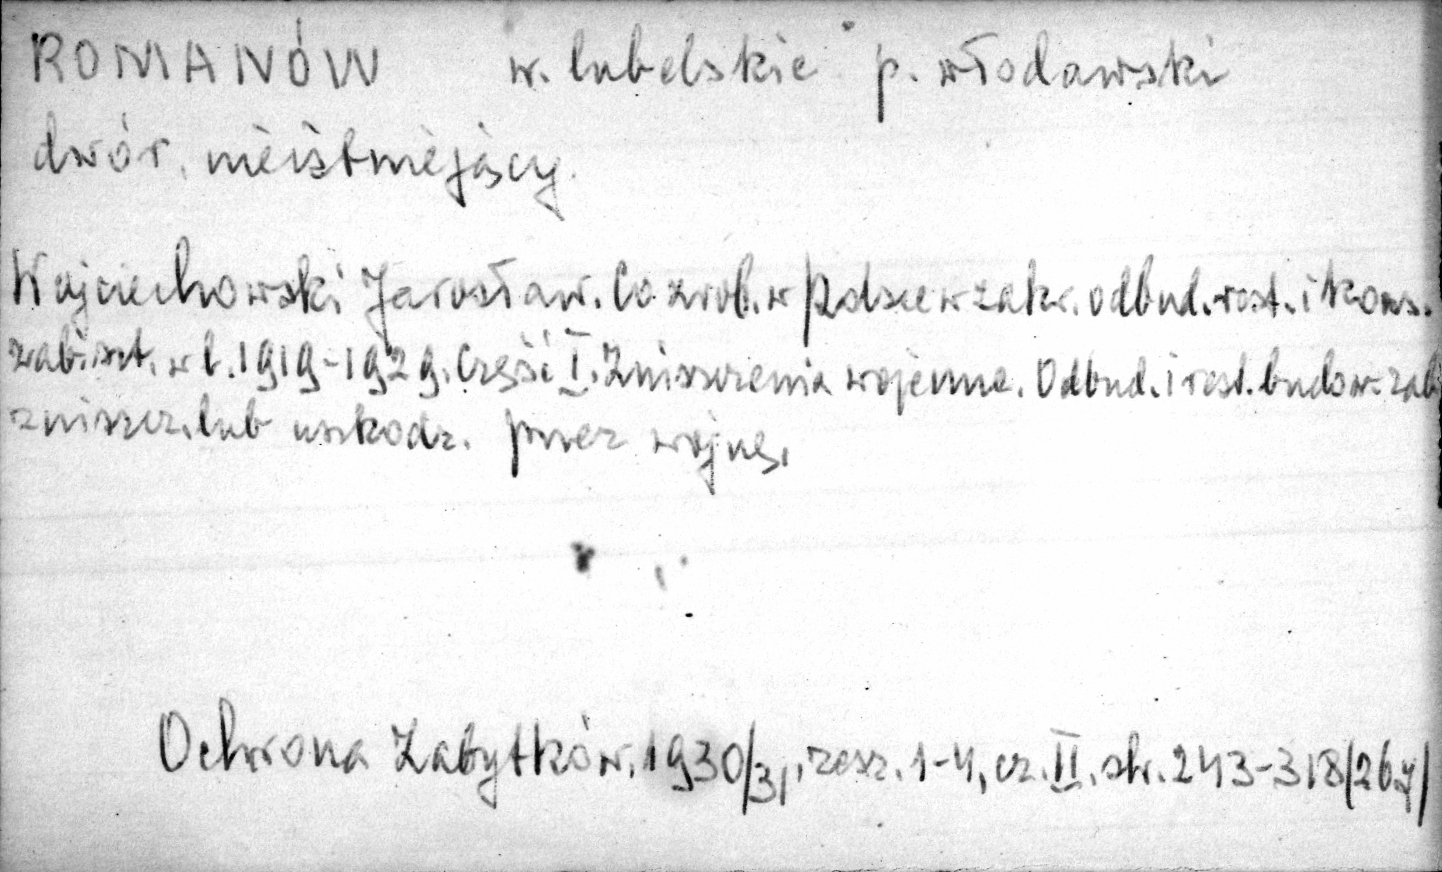 ROMANÓW w. lubelskie p. włodawski
dwór, nieistniejący.
Wojciechowski Jarosław. Co zrob. w Polsce w zakr. odbud. rest. i kons.
zab. szt. w l. 1919-1929. Część I. Zniszczenia wojenne. Odbud. i rest. budow. zab
zniszcz. lub uszkodz. przez wojnę.
Ochrona Zabytków, 1930/31, zesz. 1-4, cz. II. str. 243-318/267/